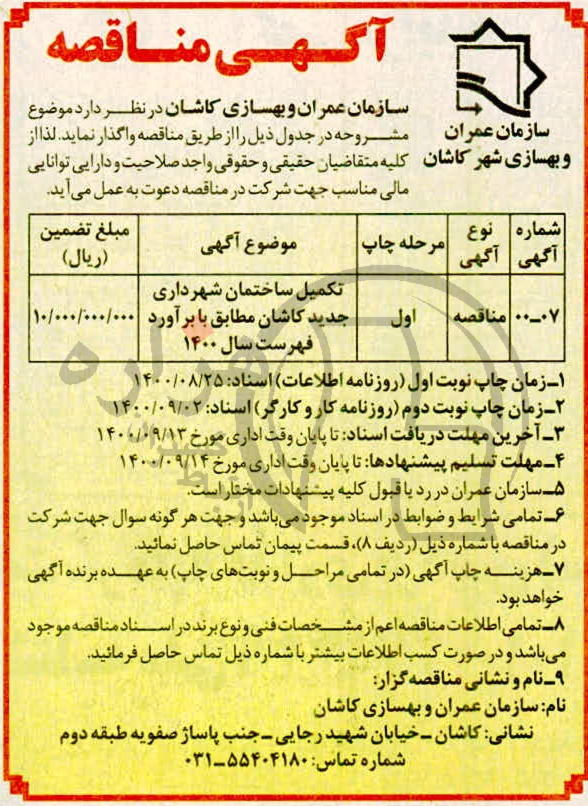 آگهی مناقصه
سازمان عمران
و بهسازی شهر کاشان
سازمان عمران و بهسازی کاشان در نظر دارد موضوع
مشروحه در جدول ذیل را از طریق مناقصه واگذار نماید. لذا از
کلیه متقاضیان حقیقی و حقوقی واجد صلاحیت و دارایی توانایی
مالی مناسب جهت شرکت در مناقصه دعوت به عمل می‌آید.
شماره آگهی نوع آگهی مرحله چاپ موضوع آگهی مبلغ تضمین (ریال)
۰۷-۰۰ مناقصه اول تکمیل ساختمان شهرداری جدید کاشان مطابق با برآورد فهرست سال ۱۴۰۰ ۱۰/۰۰۰/۰۰۰/۰۰۰
۱-زمان چاپ نوبت اول (روزنامه اطلاعات) اسناد: ۱۴۰۰/۰۸/۲۵
۲-زمان چاپ نوبت دوم (روزنامه کار و کارگر) اسناد: ۱۴۰۰/۰۹/۰۲
۳-آخرین مهلت دریافت اسناد: تا پایان وقت اداری مورخ ۱۴۰۰/۰۹/۱۳
۴-مهلت تسلیم پیشنهادها: تا پایان وقت اداری مورخ ۱۴۰۰/۰۹/۱۴
۵-سازمان عمران در رد یا قبول کلیه پیشنهادات مختار است.
۶-تمامی شرایط و ضوابط در اسناد موجود می‌باشد و جهت هر گونه سوال جهت شرکت
در مناقصه با شماره ذیل (ردیف ۸)، قسمت پیمان تماس حاصل نمائید.
۷-هزینه چاپ آگهی (در تمامی مراحل و نوبت‌های چاپ) به عهده برنده آگهی
خواهد بود.
۸-تمامی اطلاعات مناقصه اعم از مشخصات فنی و نوع برند در اسناد مناقصه موجود
می‌باشد و در صورت کسب اطلاعات بیشتر با شماره ذیل تماس حاصل فرمائید.
۹-نام و نشانی مناقصه‌گزار:
نام: سازمان عمران و بهسازی کاشان
نشانی: کاشان - خیابان شهید رجایی - جنب پاساژ صفویه طبقه دوم
شماره تماس: ۵۵۴۰۴۱۸۰-۰۳۱